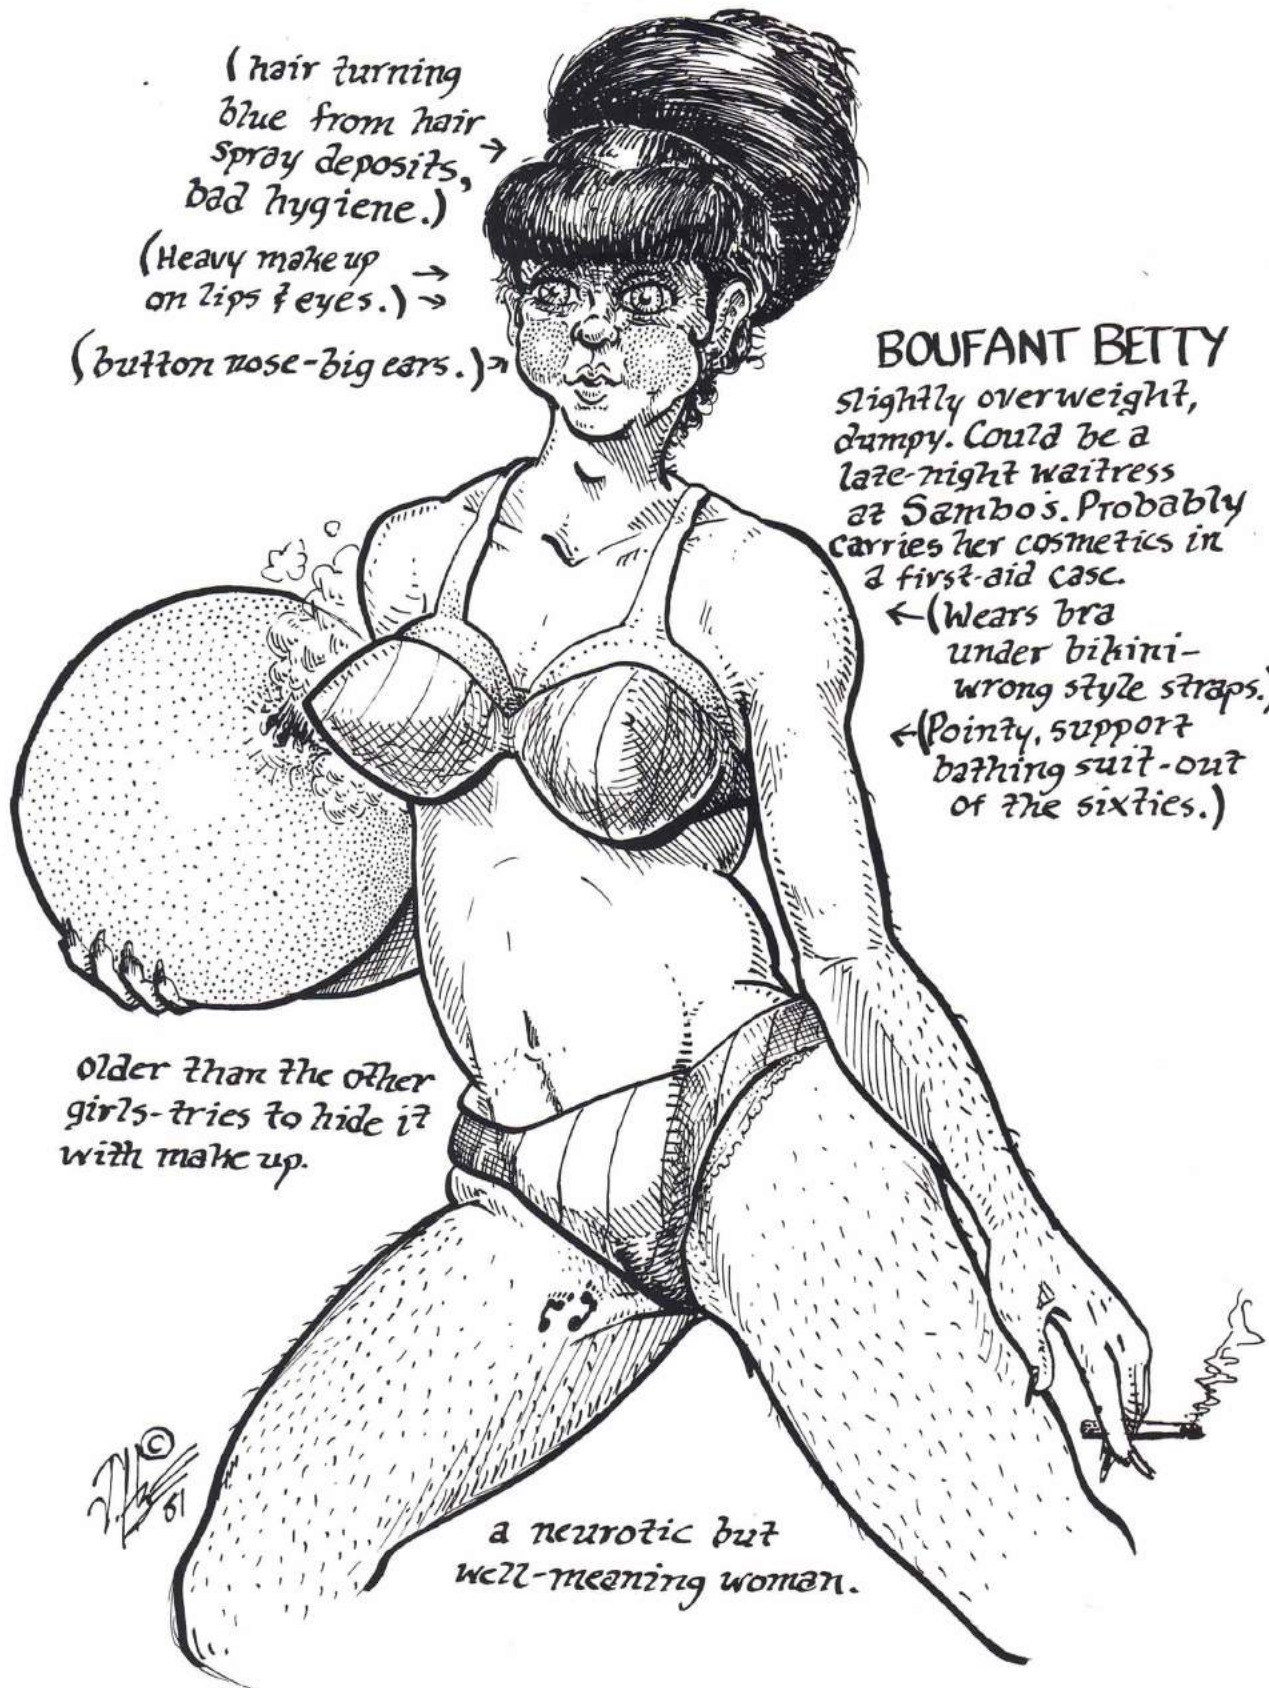 (hair turning
blue from hair
spray deposits,
bad hygiene.)
(Heavy make up
on lips & eyes.)
(button nose-big ears.)
BOUFANT BETTY
slightly overweight,
dumpy. Could be a
late-night waitress
at Sambo's. Probably
carries her cosmetics in
a first-aid case.
(Wears bra
under bikini-
wrong style straps.)
(Pointy, support
bathing suit-out
of the sixties.)
older than the other
girls-tries to hide it
with make up.
©
81
a neurotic but
well-meaning woman.